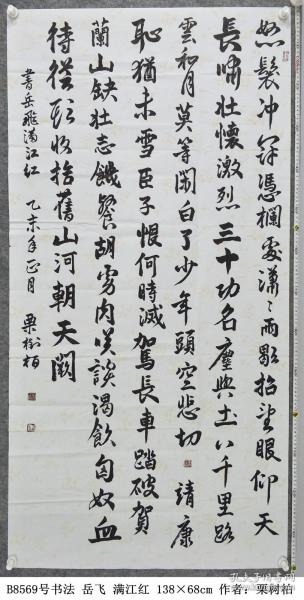 怒髮冲冠憑欄處瀟瀟雨歇抬望眼仰天
長嘯壯懷激烈三十功名塵與土八千里路
雲和月莫等閑白了少年頭空悲切 靖康
恥猶未雪臣子恨何時滅駕長車踏破賀
蘭山缺壯志饑餐胡虜肉笑談渴飲匈奴血
待從頭收拾舊山河朝天闕
書岳飛滿江红 乙未年正月 栗樹栢
B8569号书法 岳飞 满江红 138×68cm 作者:栗树柏